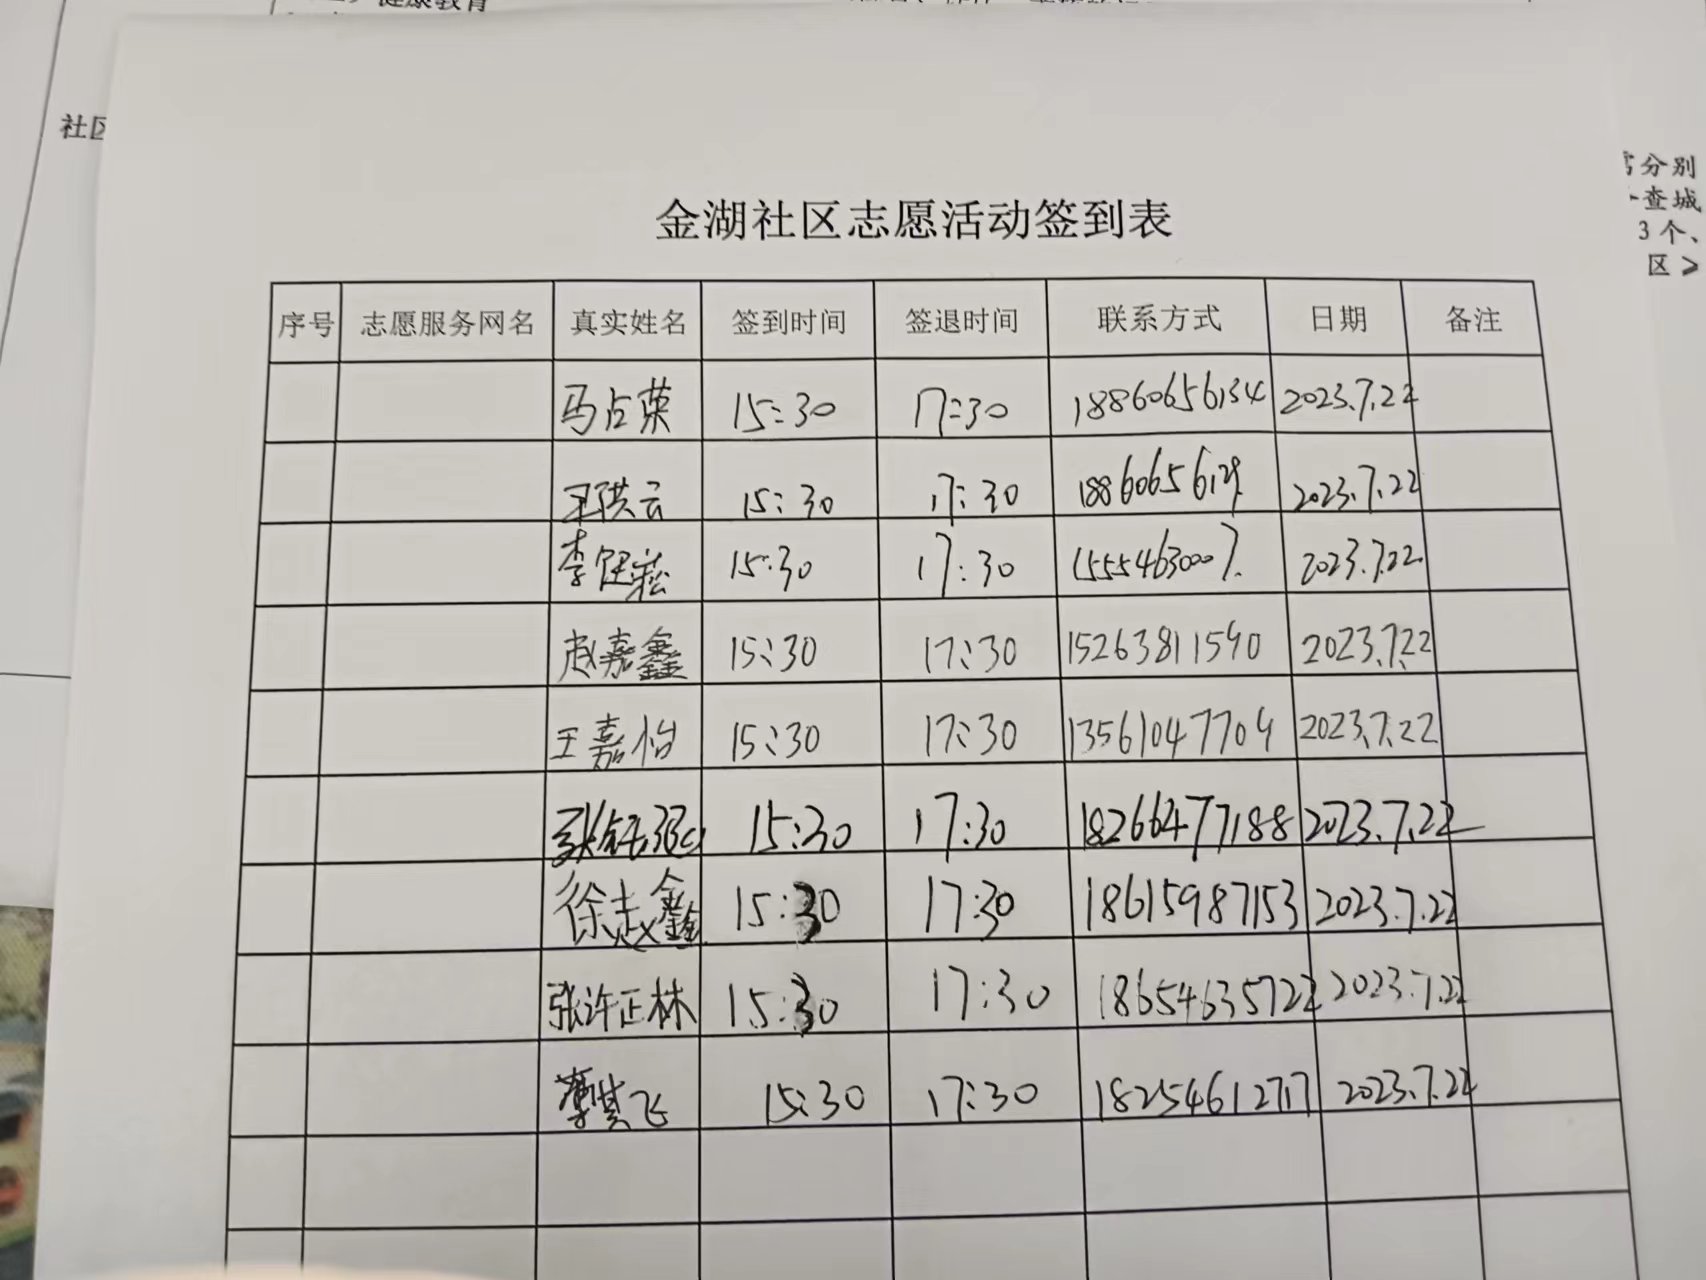 健康教育
社区
官分别
查城
3个、
区≥
金湖社区志愿活动签到表
序号 志愿服务网名 真实姓名 签到时间 签退时间 联系方式 日期 备注
马占荣 15:30 17:30 18860656134 2023.7.22
王洪云 15:30 17:30 2023.7.22
15:30 17:30 15554630007 2023.7.22
赵嘉鑫 15:30 17:30 15263811590 2023.7.22
王嘉怡 15:30 17:30 13561047709 2023.7.22
15:30 17:30 18266477188 2023.7.22
徐志鑫 15:30 17:30 18615987153 2023.7.22
张许正林 15:30 17:30 18654635722 2023.7.22
15:30 17:30 18254612717 2023.7.22